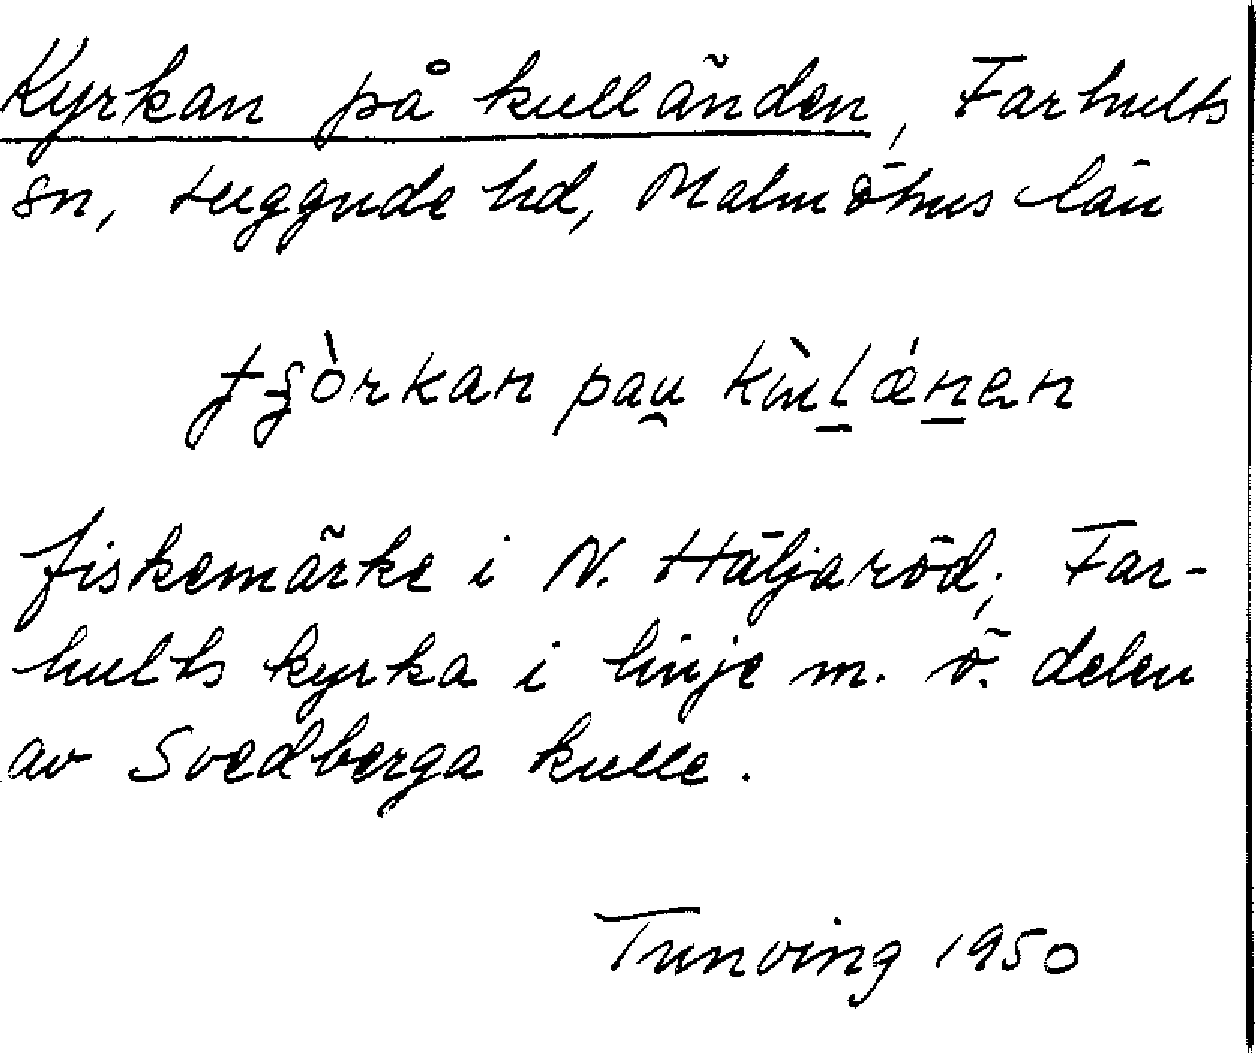 Kyrkan på kulländen, Farhults
sn, Luggude hd, Malmöhus län
pau
fiskemärke i N. Häljaröd; Far-
hults kyrka i linje m. ö. delen
av Svedberga kulle.
Tunving 1950